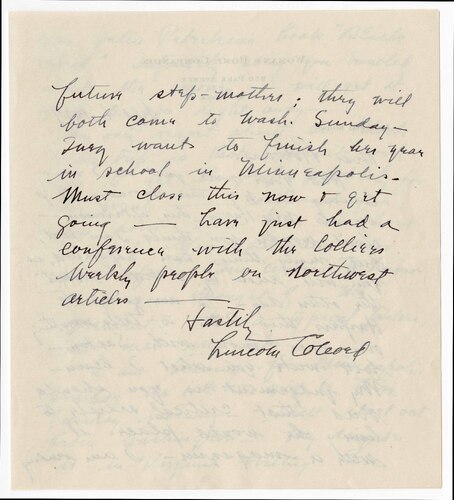 future step-mother; they will
both come to Wash. Sunday —
wants to finish her year
in school in Minneapolis.
Must close this now & get
going — have just had a
conference with the Colliers
Weekly people on Northwest
articles —
Hastily
Lincoln Colcord